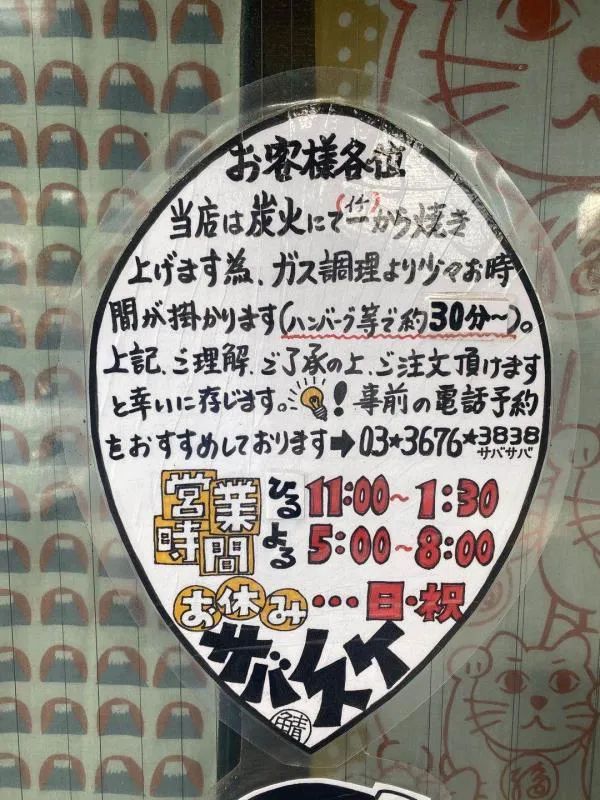 お客様各位
当店は炭火にて(イチ)一から焼き
上げます為、ガス調理より少々お時
間が掛かります(ハンバーグ等で約30分〜)。
上記、ご理解、ご了承の上、ご注文頂けます
と幸いに存じます。!事前の電話予約
をおすすめしております➡03★3676★3838
サバサバ
営業時間
ひる 11:00〜1:30
よる 5:00〜8:00
お休み…日・祝
サバスケ
鯖
福